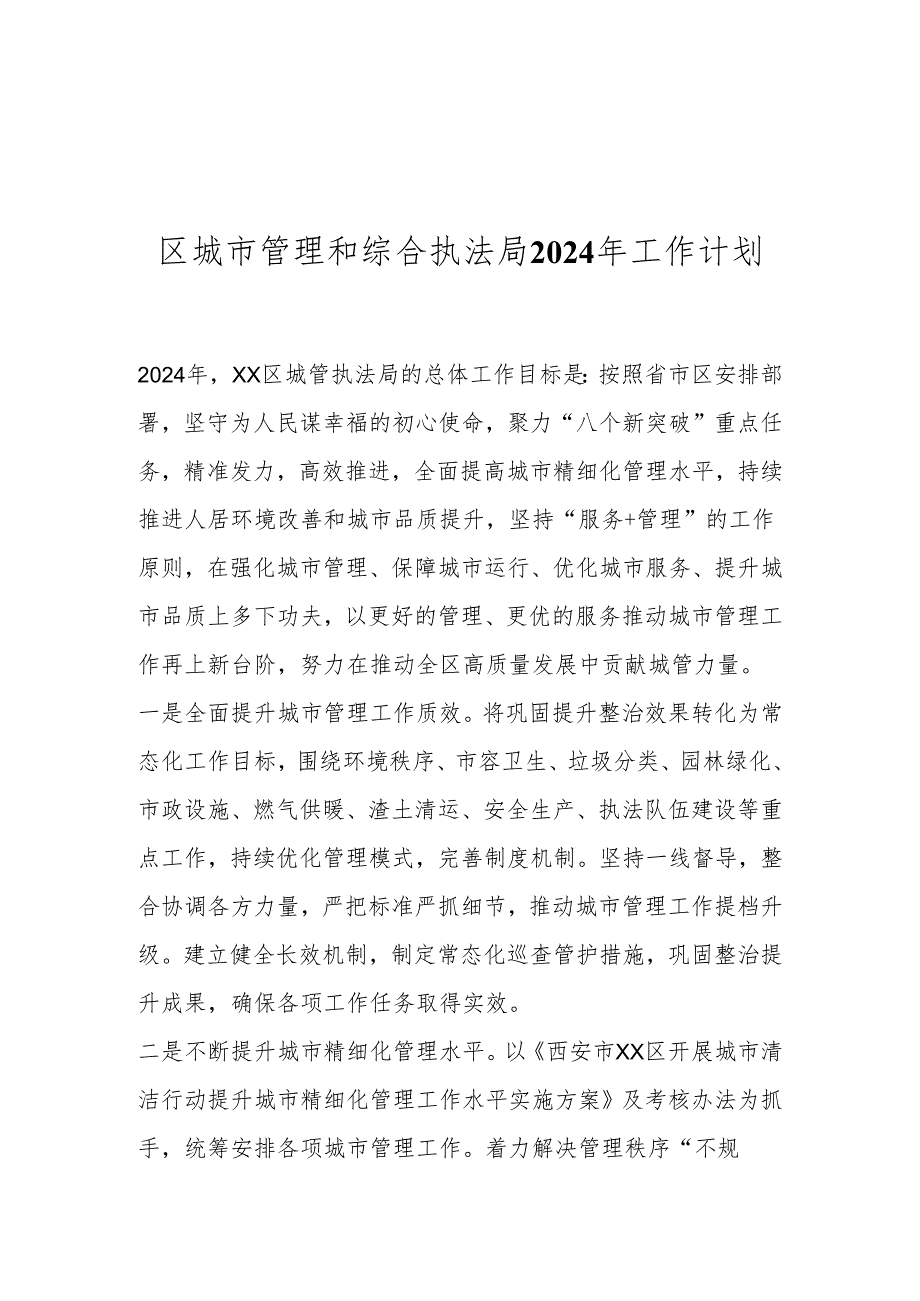 区城市管理和综合执法局2024年工作计划
2024年，XX区城管执法局的总体工作目标是：按照省市区安排部
署，坚守为人民谋幸福的初心使命，聚力“八个新突破”重点任
务，精准发力，高效推进，全面提高城市精细化管理水平，持续
推进人居环境改善和城市品质提升，坚持“服务+管理”的工作
原则，在强化城市管理、保障城市运行、优化城市服务、提升城
市品质上多下功夫，以更好的管理、更优的服务推动城市管理工
作再上新台阶，努力在推动全区高质量发展中贡献城管力量。
一是全面提升城市管理工作质效。将巩固提升整治效果转化为常
态化工作目标，围绕环境秩序、市容卫生、垃圾分类、园林绿化、
市政设施、燃气供暖、渣土清运、安全生产、执法队伍建设等重
点工作，持续优化管理模式，完善制度机制。坚持一线督导，整
合协调各方力量，严把标准严抓细节，推动城市管理工作提档升
级。建立健全长效机制，制定常态化巡查管护措施，巩固整治提
升成果，确保各项工作任务取得实效。
二是不断提升城市精细化管理水平。以《西安市XX区开展城市清
洁行动提升城市精细化管理工作水平实施方案》及考核办法为抓
手，统筹安排各项城市管理工作。着力解决管理秩序“不规